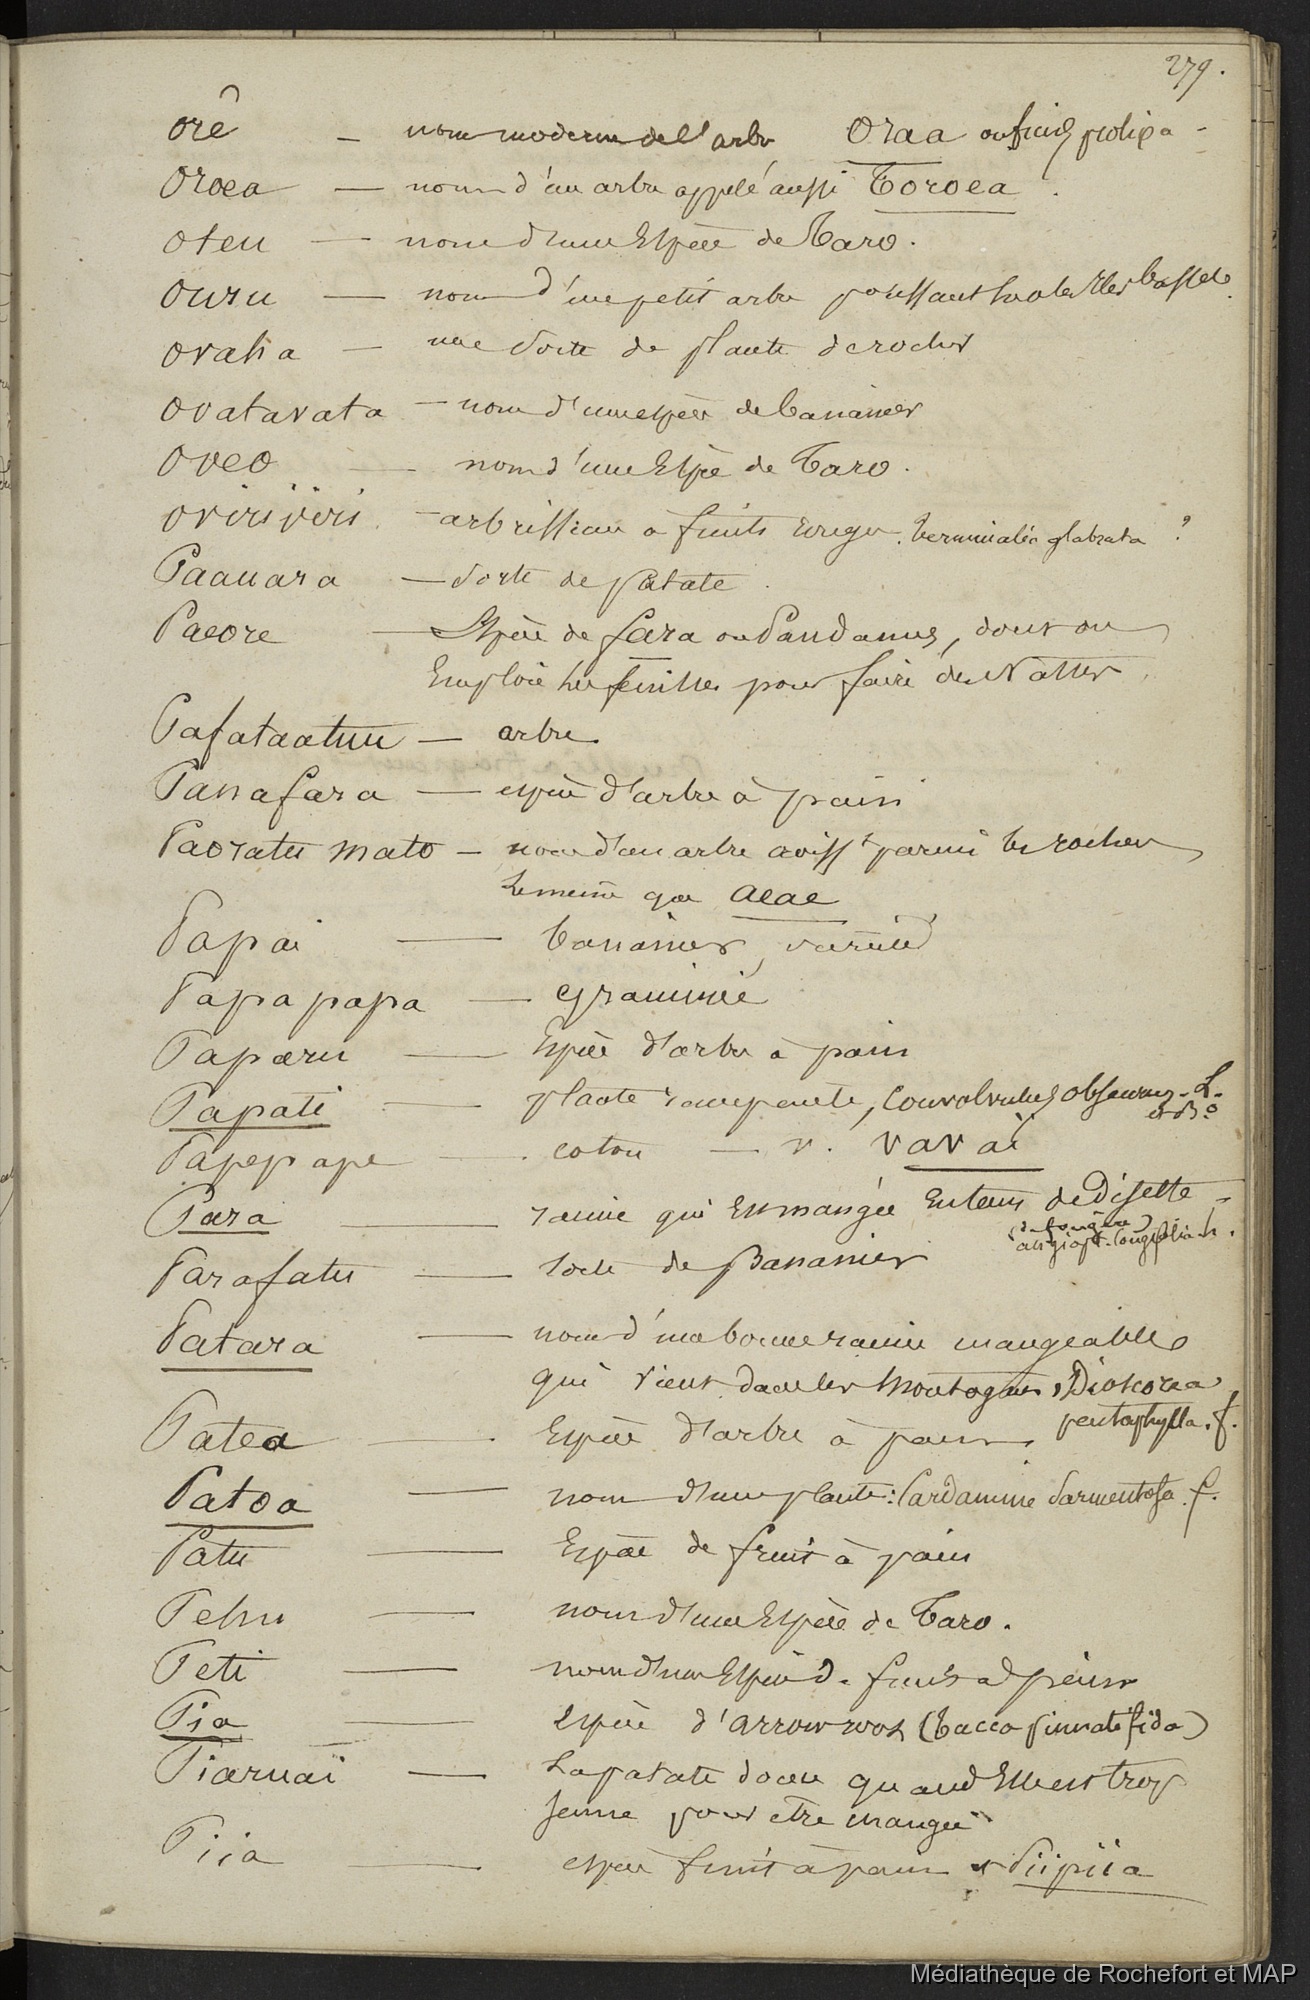 279.
orê — nom moderne de l'arbre Oraa ou ficus prolixa -
oroea — nom d'un arbre appelé aussi Toroea.
oteu — nom d'une Espèce de Taro.
ouru — nom d'une petit arbre poussant sur les Iles basses
ovaha — une sorte de plante de rocher
ovatavata — nom d'une espèce de bananier
oveo — nom d'une Espèce de Taro.
oviriviri — arbrisseau à fruits rouges. terminalia glabrata ?
Paauara — sorte de patate.
Paeore — Espèce de fara ou Pandanus, dont on
Emploie les feuilles pour faire des Nattes.
Pafataatuu — arbre
Panafara — espèce d'arbre à pain
Paoratu mato — nom d'un arbre croisst parmi les rochers
le même que aeae
Papai — bananier, variété
Papapapa — graminée
Paparu — Espèce d'arbre à pain
Papati — plante rampante, Convolvulus obscurus - L.
Papepape — coton — v. vavaï
Para — racine qui Est mangée En tems de Disette -
(de fougère)
angiopt. longifolia h.
Parafatu — sorte de Bananier
Patara — nom d'une bonne racine mangeable
qui vient dans les Montagnes, Dioscorea
pentaphylla. f.
Patea — Espèce d'arbre à pain
Patoa — nom d'une plante : Cardamine Sarmentosa. f.
Patu — Espèce de fruit à pain
Pehu — nom d'une Espèce de Taro.
Peti — nom d'une Espèce d. fruit à pain
Pia — espèce d'arrow root (tacca pinnatifida)
Piaruai — La patate douce quand Elle est trop
jeune pour être mangée
Piia — espèce fruit à pain v Piipiia
Médiathèque de Rochefort et MAP